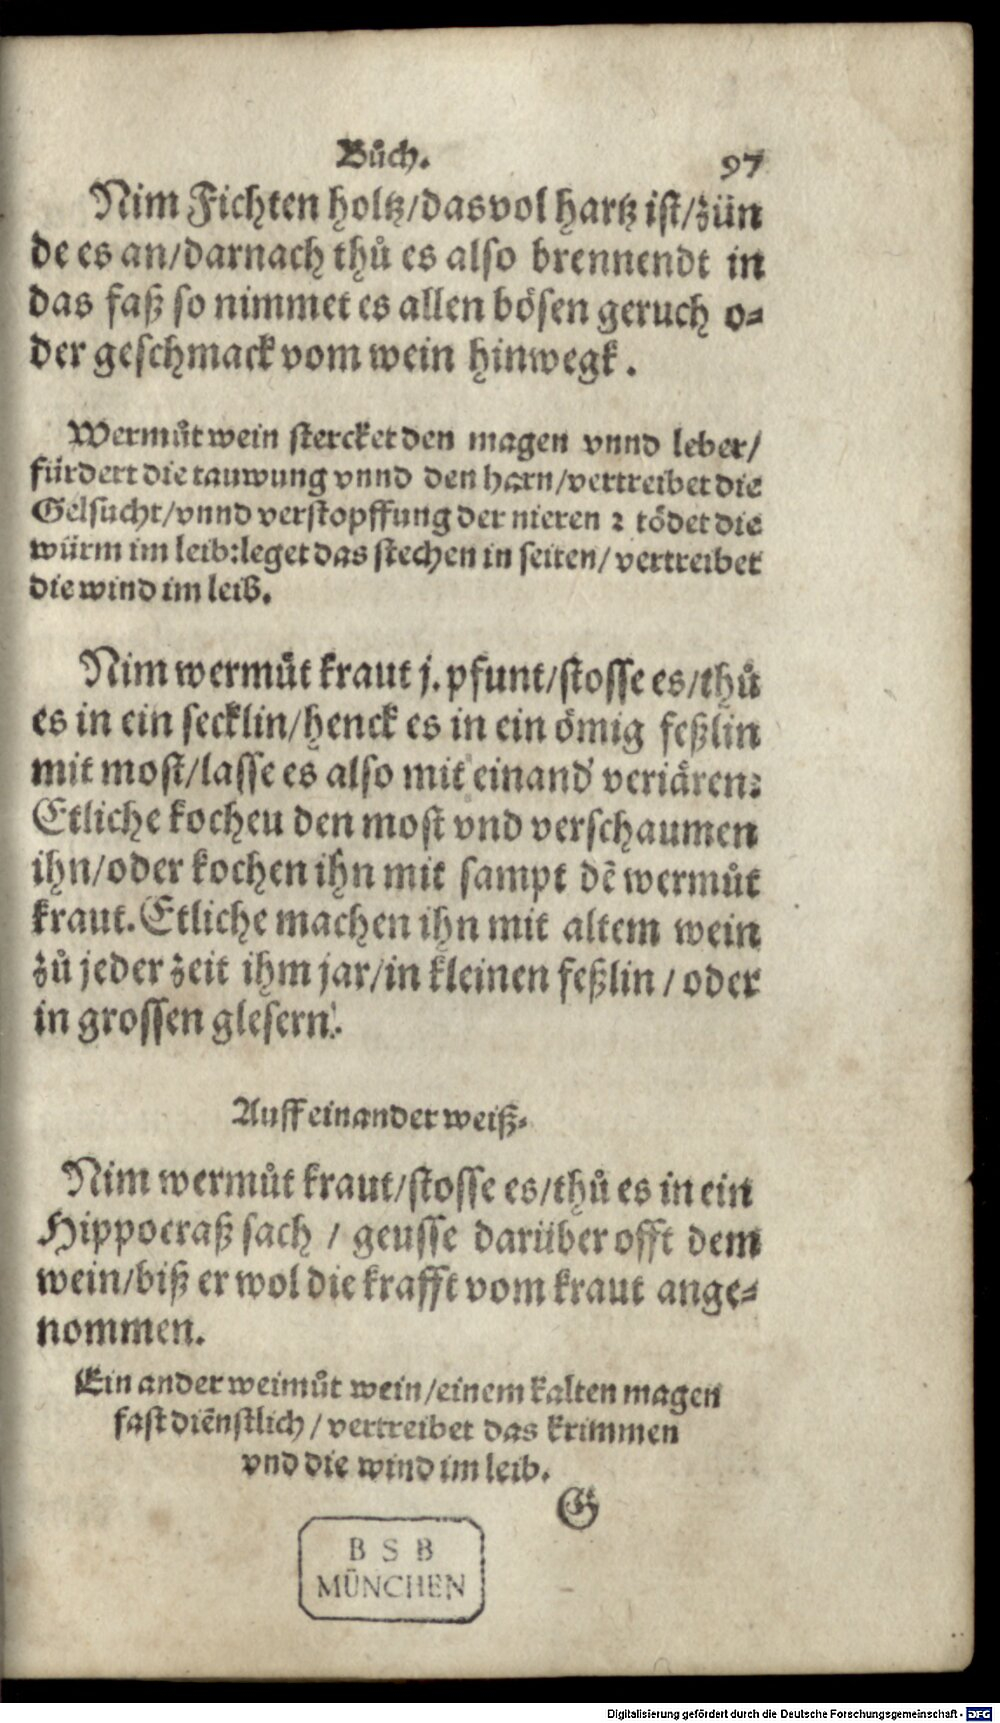 Bůch. 97
Nim Fichten holtz/das vol hartz ist/zün
de es an/darnach thů es also brennendt in
das faß so nimmet es allen bösen geruch o-
der geschmack vom wein hinwegk.
Wermůt wein stercket den magen vnnd leber/
fürdert die tauwung vnnd den harn/vertreibet die
Gelsucht/vnnd verstopffung der nieren ꝛ tödet die
würm im leib:leget das stechen in seiten/vertreibet
die wind im leib.
Nim wermůt kraut j. pfunt/stosse es/thů
es in ein secklin/henck es in ein ömig feßlin
mit most/lasse es also mit einand' veriären:
Etliche kocheu den most vnd verschaumen
ihn/oder kochen ihn mit sampt dē wermůt
kraut. Etliche machen ihn mit altem wein
zů jeder zeit ihm jar/in kleinen feßlin/oder
in grossen glesern.
Auff ein ander weiß.
Nim wermůt kraut/stosse es/thů es in ein
Hippocraß sach / geusse darüber offt dem
wein/biß er wol die krafft vom kraut ange-
nommen.
Ein ander weimůt wein/einem kalten magen
fast diēnstlich/vertreibet das krimmen
vnd die wind im leib.
G
B S B
MÜNCHEN
Digitalisierung gefördert durch die Deutsche Forschungsgemeinschaft - DFG